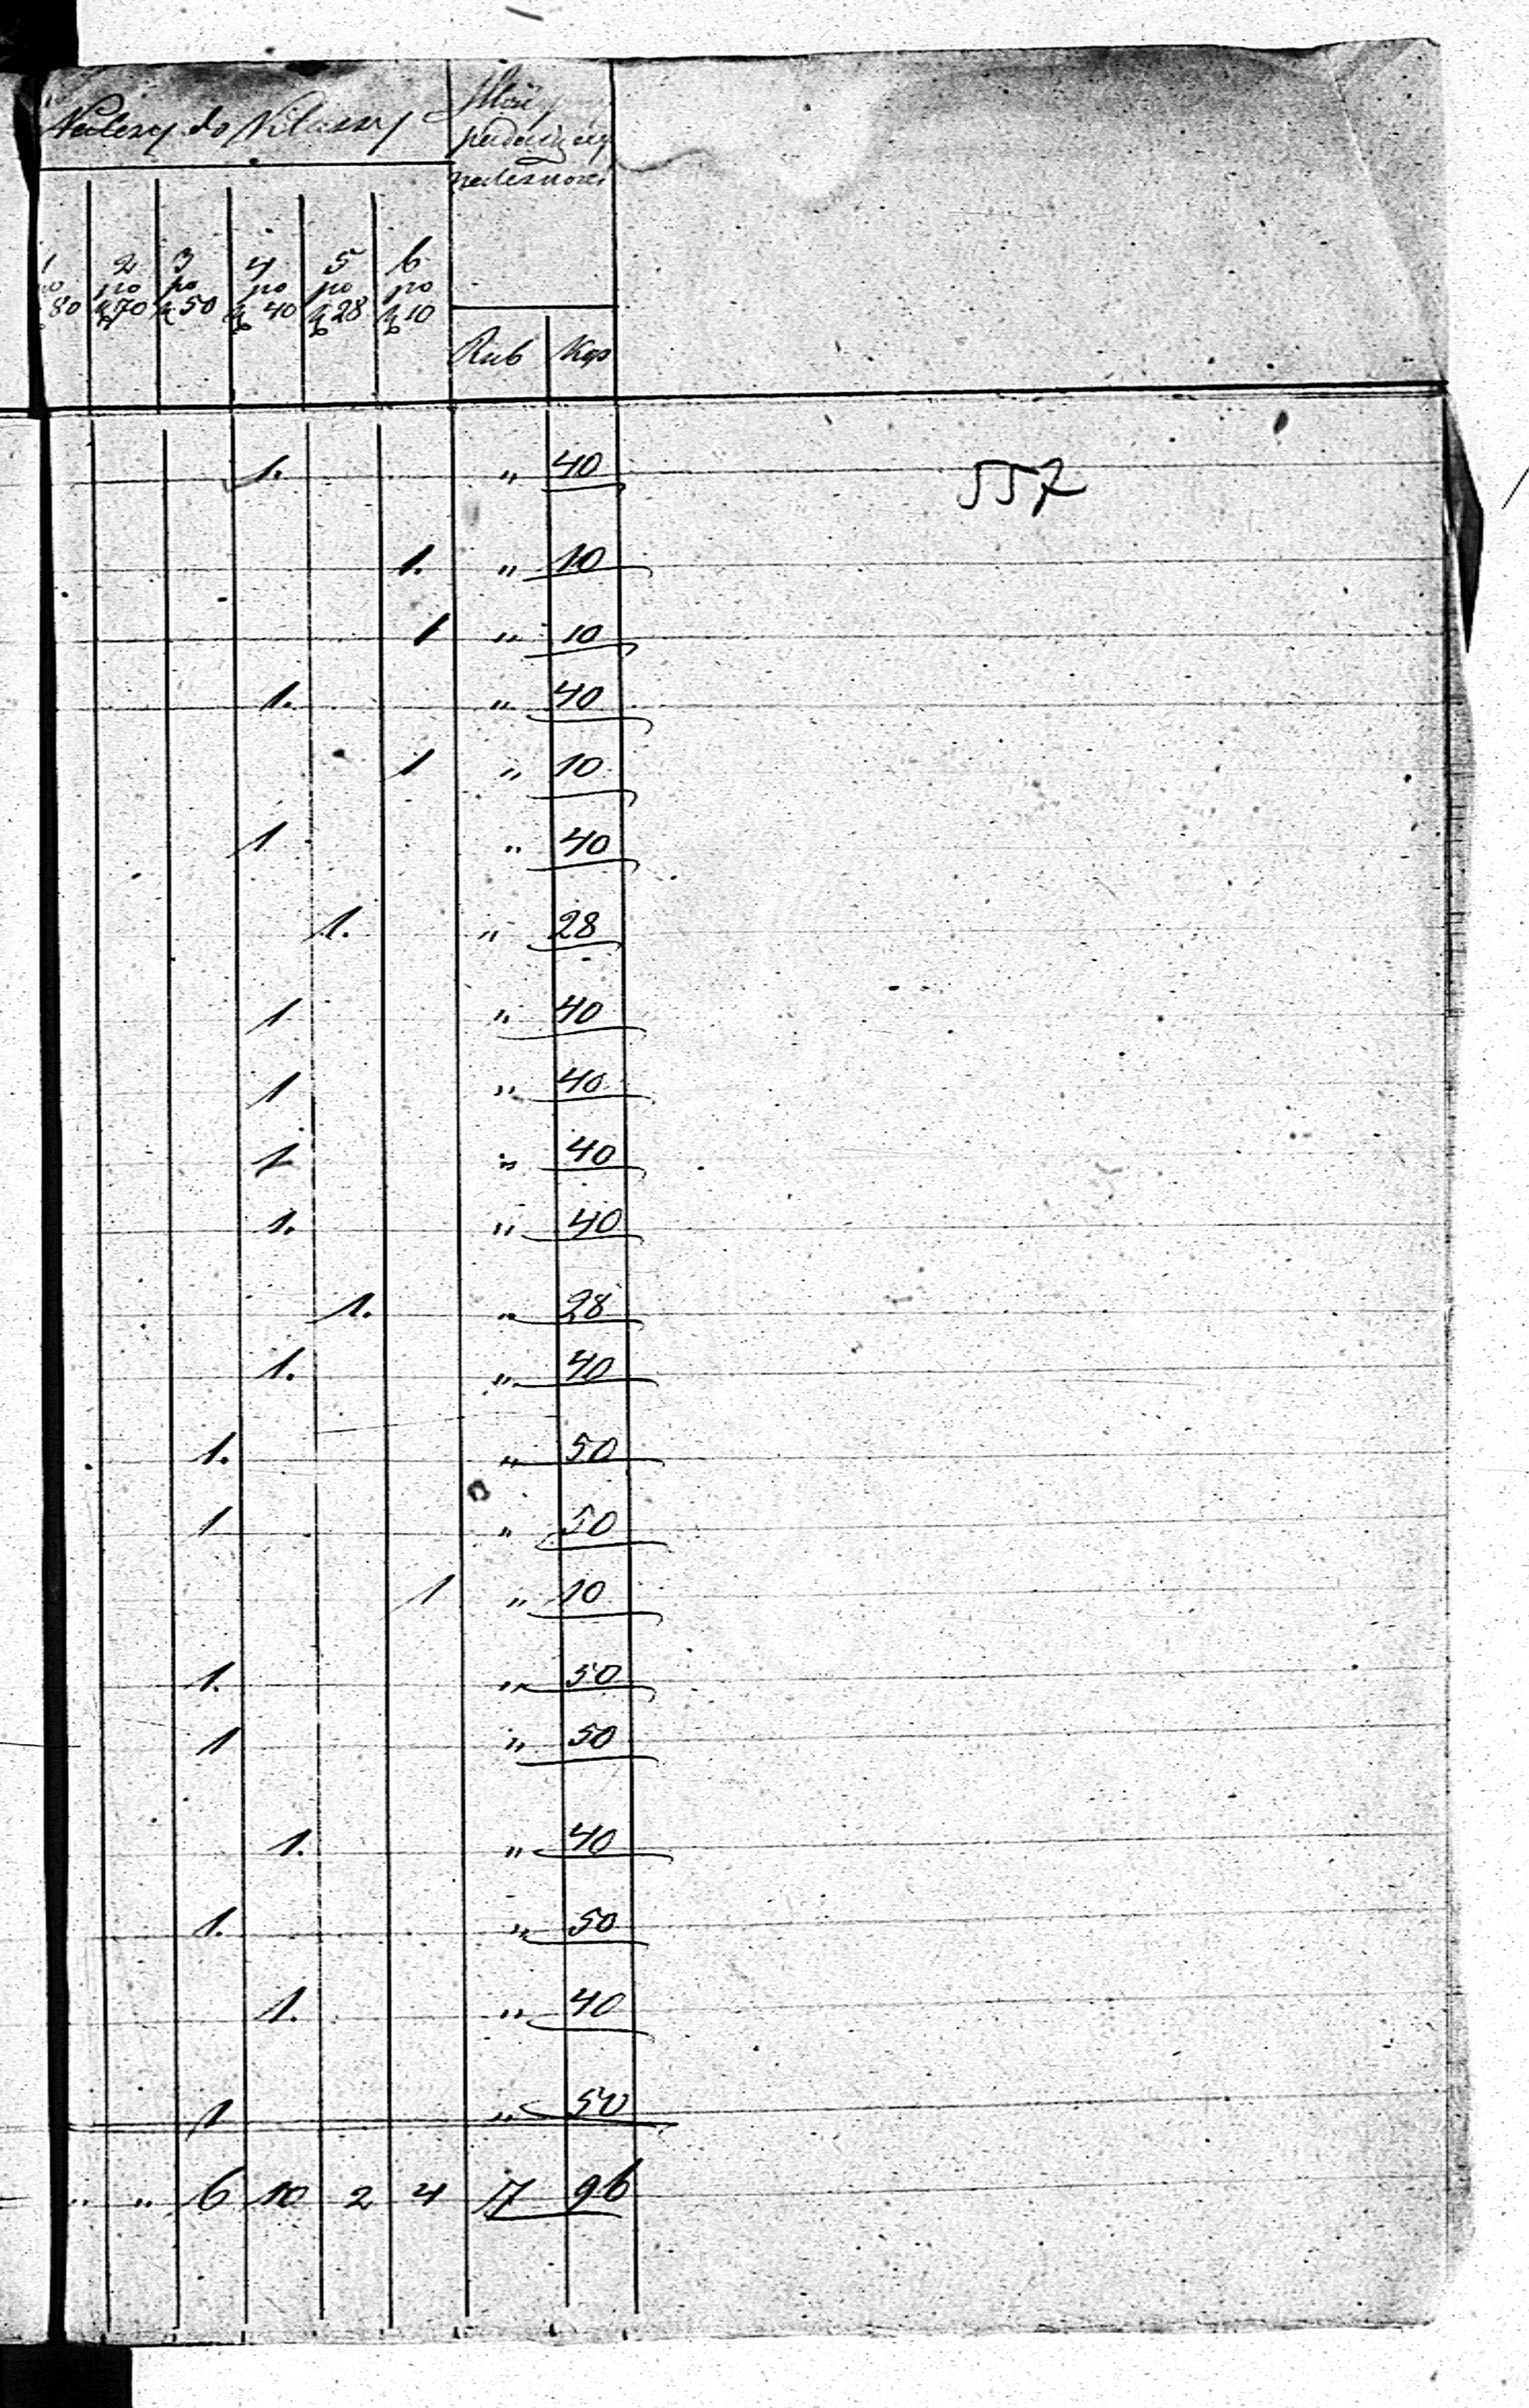 Należy do Klassy
1 2 3 4 5 6
po po po po po po
80 k 70 k 50 k 40 k 28 k 10
Rub Kop
1. " 40
557
1. " 10
1 " 10
1. " 40
1 " 10
1 " 40
1. " 28
1 " 40
1 " 40
1 " 40
1. " 40
1. " 28
1. " 40
1. " 50
1 " 50
1 " 10
1. " 50
1 " 50
1. " 40
1. " 50
1. " 40
1 " 50
" " 6 10 2 4 7 96